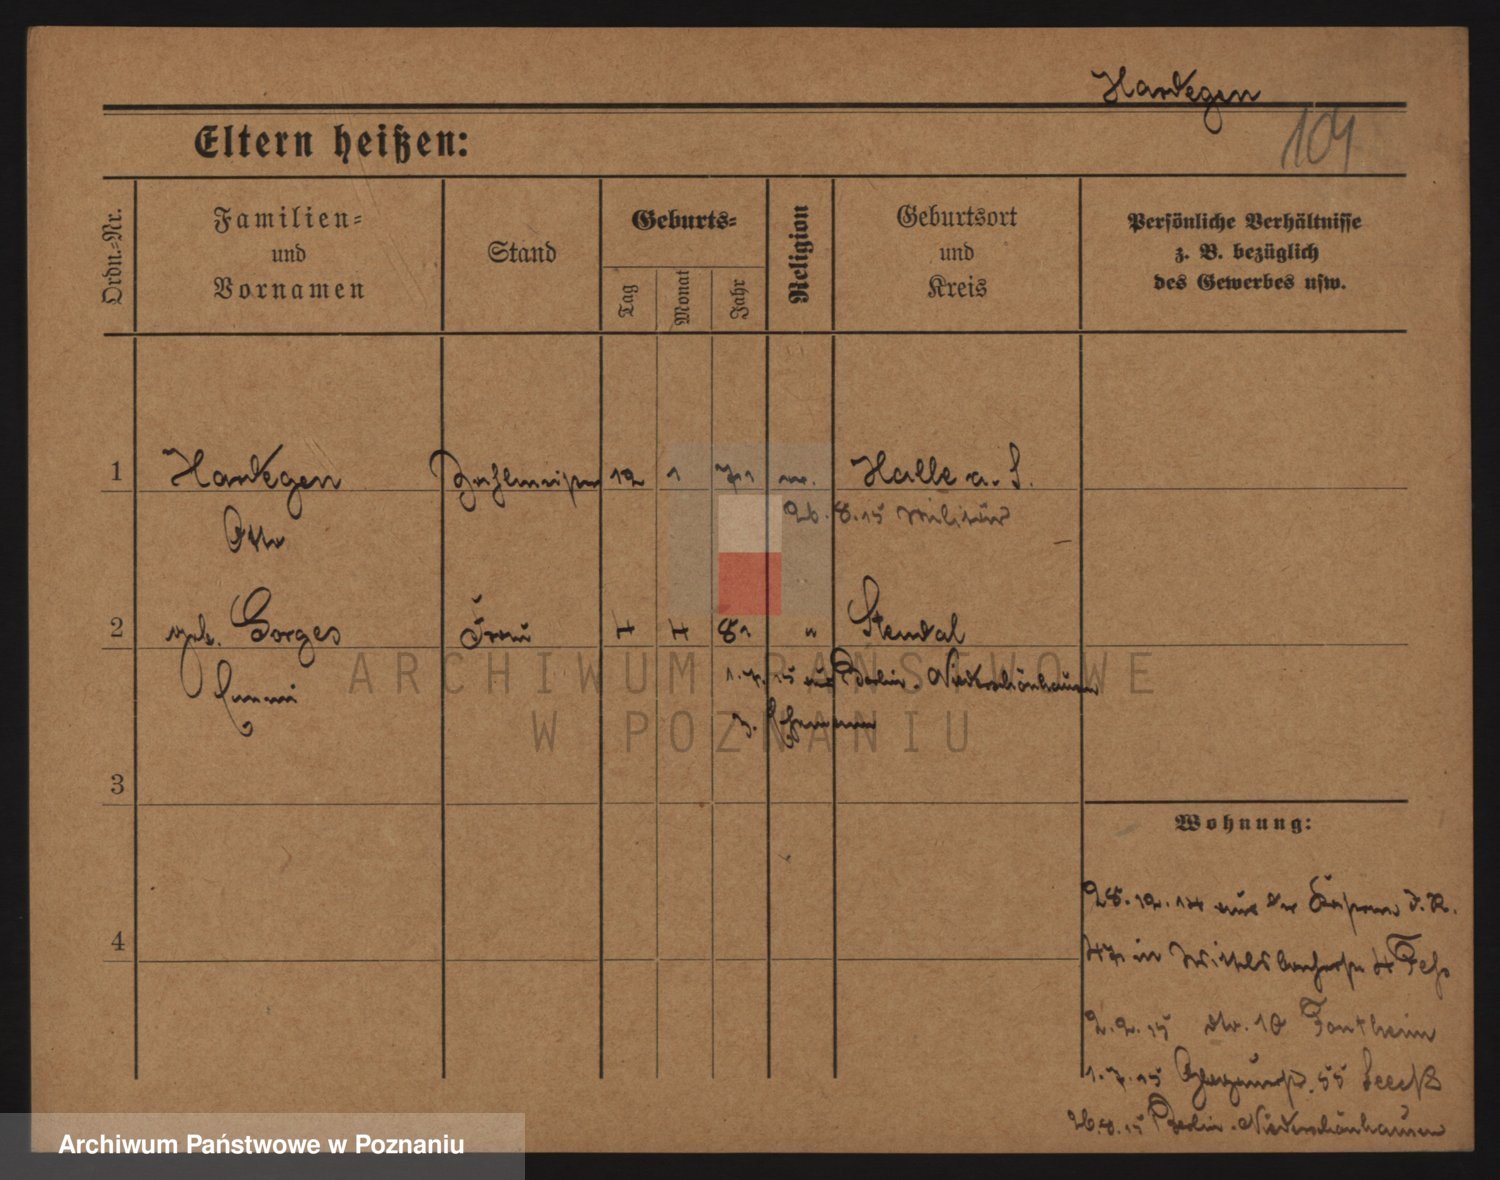 Hardegen
104
Eltern heißen:
Ordn.-Nr.
Familien-
und
Vornamen
Stand
Geburts-
Tag
Monat
Jahr
Religion
Geburtsort
und
Kreis
Persönliche Verhältnisse
z. B. bezüglich
des Gewerbes usw.
1 Hardegen Zahlmeister 12 1 71 ev. Halle a. S.
Otto 26.8.15 Militär
2 geb. Gorges Frau 4 4 81 " Stendal
Emmi 1.7.15 aus Berlin-Niederschönhausen
z. Ehemann
3
4
Wohnung:
28.12.14 aus der
47 in 4
2.2.15 10 Fontheim
1.7.15 55
26.8.15 Berlin-Niederschönhausen
ARCHIWUM PAŃSTWOWE
W POZNANIU
Archiwum Państwowe w Poznaniu